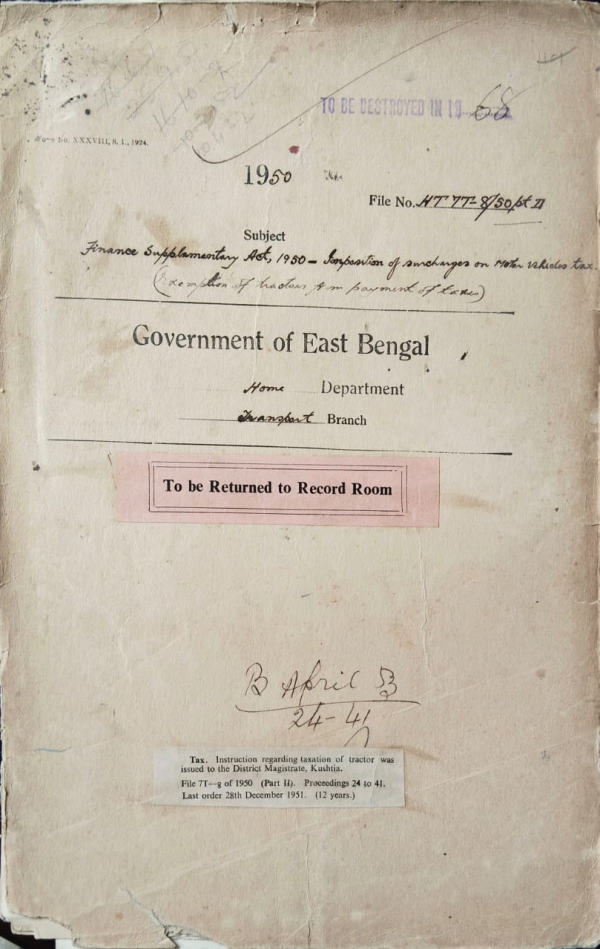 TO BE DESTROYED IN 19 68
Form No. XXXVIII, S. I., 1924.
1950
File No. HT 7T-8/50 pt II
Subject
Finance Supplamentary Act, 1950 - Imposition of surcharges on Motor Vehicles tax.
(Exemption of tractors from payment of taxes)
Government of East Bengal
Home Department
Transport Branch
To be Returned to Record Room
B April 53
24-41
Tax. Instruction regarding taxation of tractor was
issued to the District Magistrate, Kushtia.
File 7T—8 of 1950 (Part II). Proceedings 24 to 41.
Last order 28th December 1951. (12 years.)